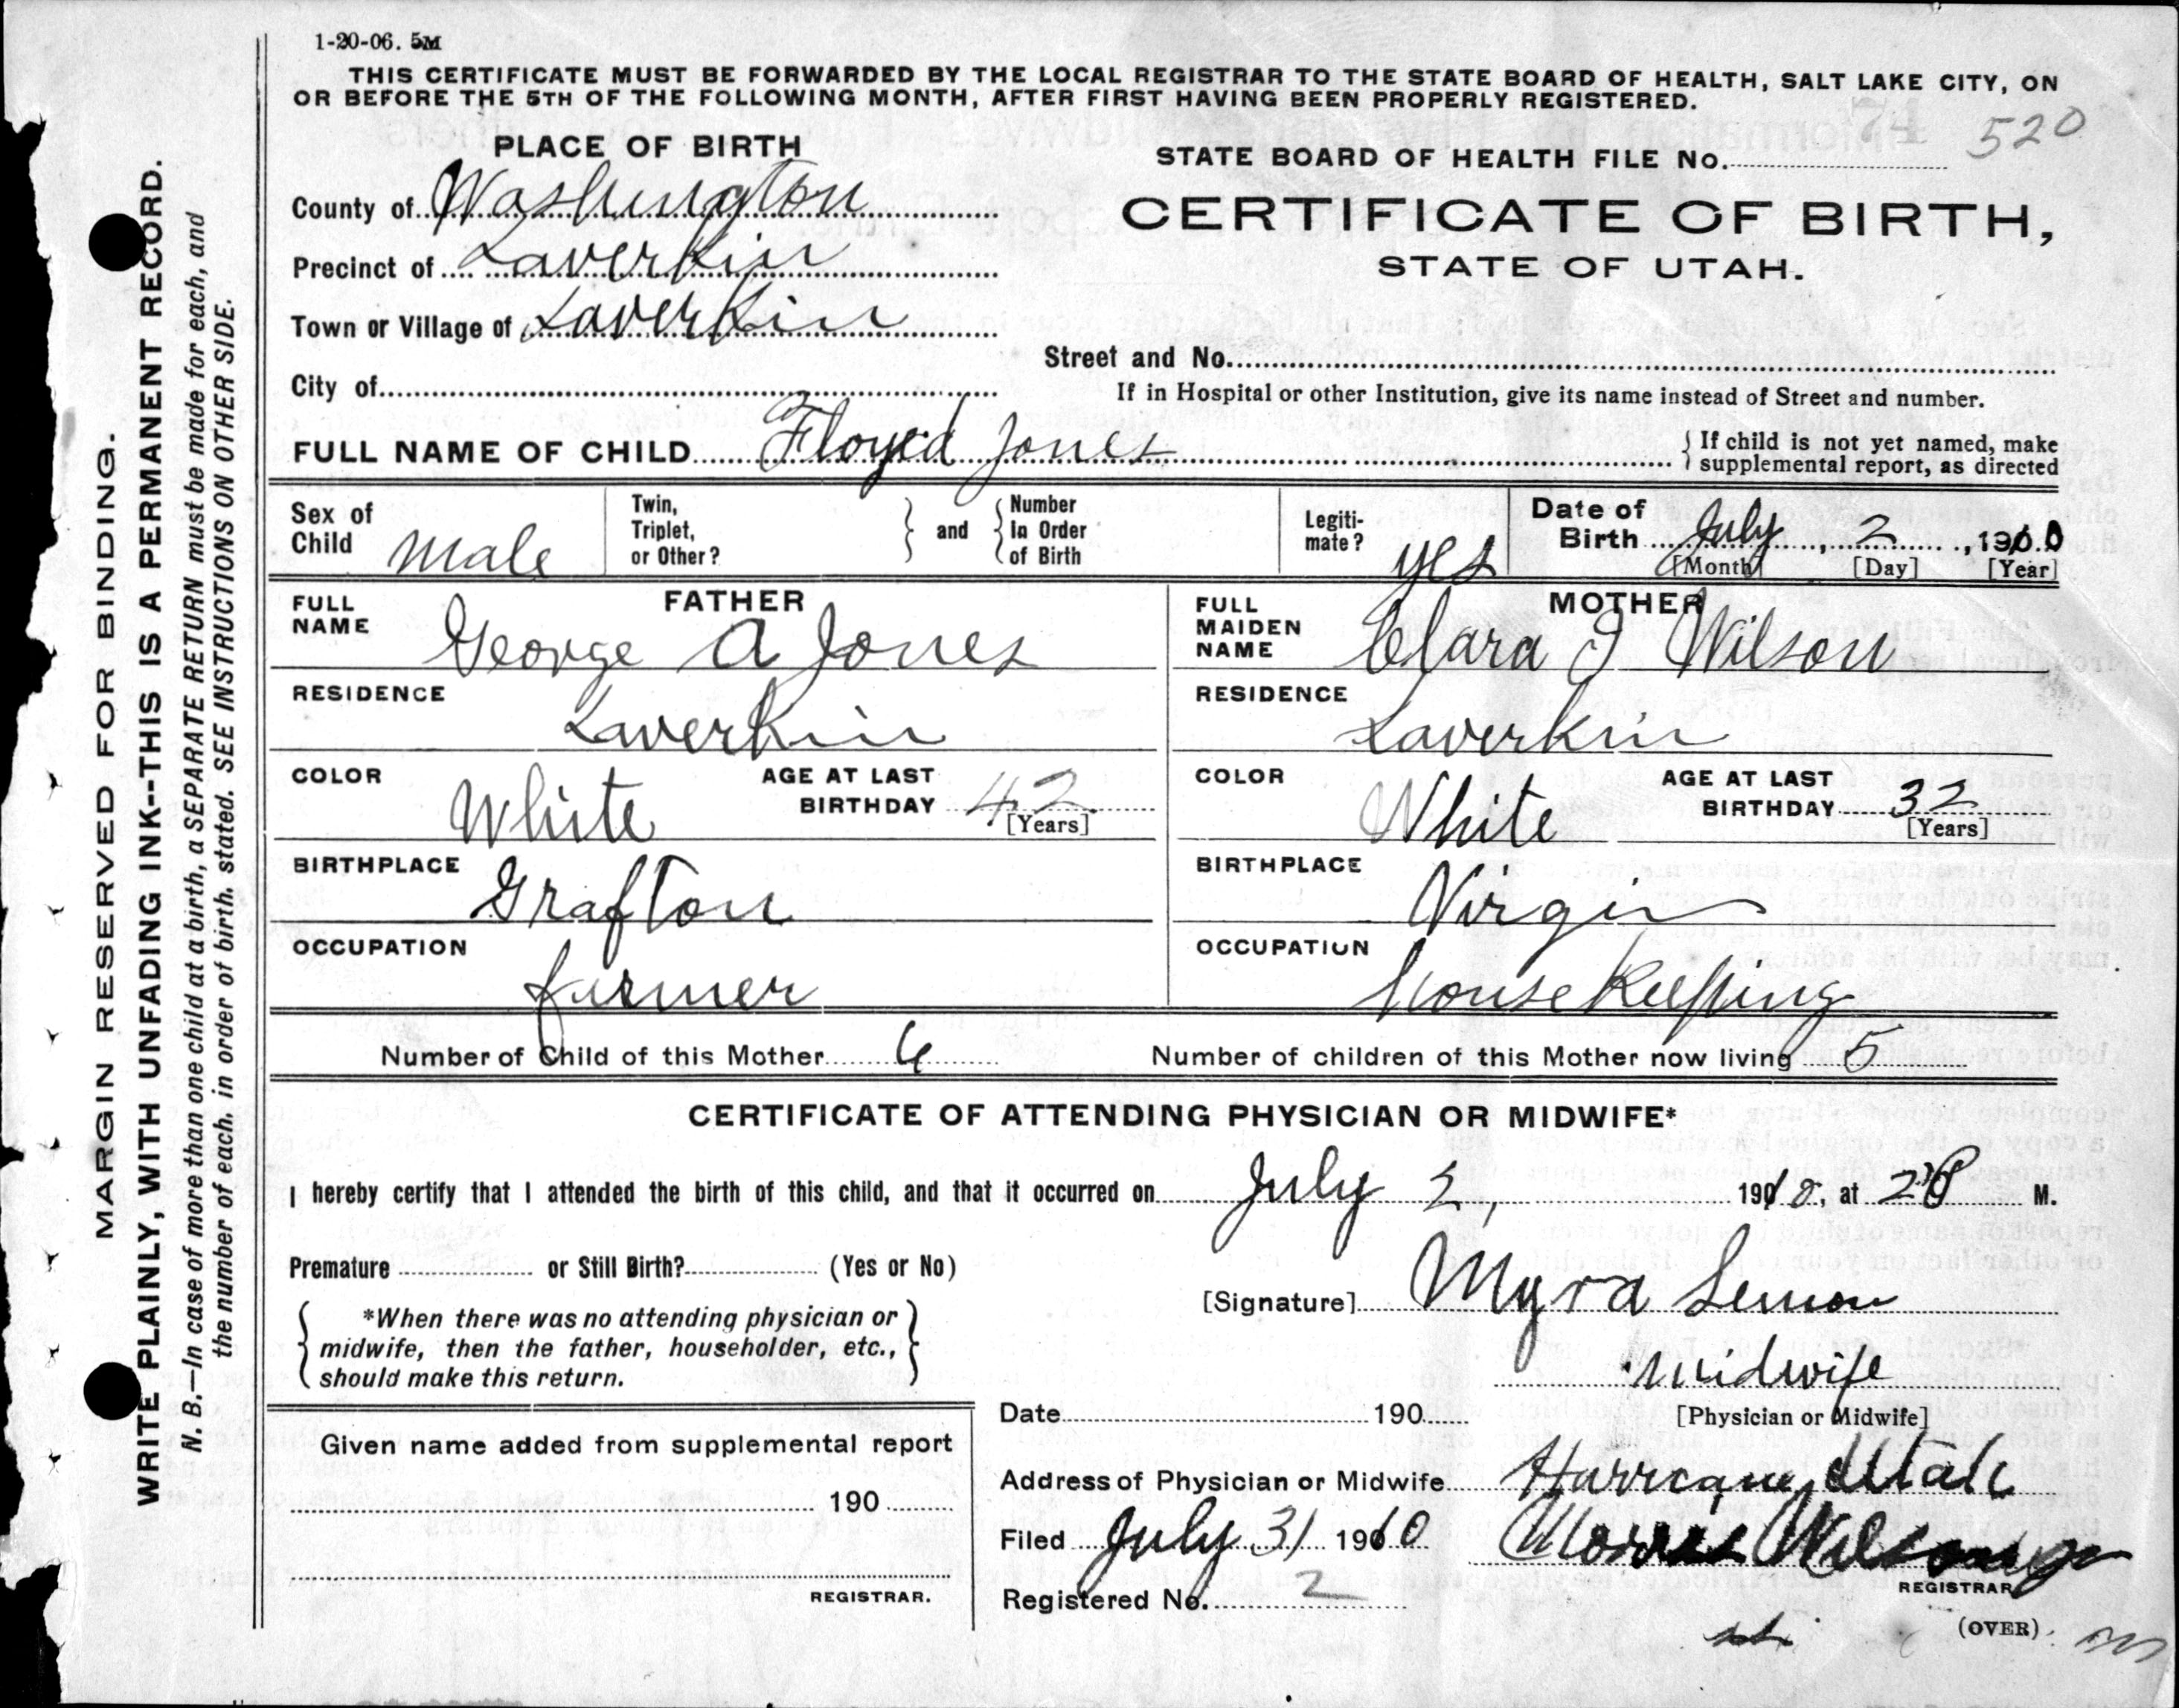 1-20-06. 5M
THIS CERTIFICATE MUST BE FORWARDED BY THE LOCAL REGISTRAR TO THE STATE BOARD OF HEALTH, SALT LAKE CITY, ON
OR BEFORE THE 5TH OF THE FOLLOWING MONTH, AFTER FIRST HAVING BEEN PROPERLY REGISTERED.
PLACE OF BIRTH
County of Washington
Precinct of Laverkin
Town or Village of Laverkin
City of
STATE BOARD OF HEALTH FILE No. 520
CERTIFICATE OF BIRTH,
STATE OF UTAH.
Street and No.
If in Hospital or other Institution, give its name instead of Street and number.
FULL NAME OF CHILD Floyed Jones
{ If child is not yet named, make
supplemental report, as directed
Sex of Child Male
Twin, Triplet, or Other?
and { Number In Order of Birth
Legitimate? yes
Date of Birth July, 2, 1910
[Month] [Day] [Year]
FATHER
FULL NAME George A Jones
RESIDENCE Laverkin
COLOR White
AGE AT LAST BIRTHDAY 42 [Years]
BIRTHPLACE Grafton
OCCUPATION farmer
MOTHER
FULL MAIDEN NAME Clara J Wilson
RESIDENCE Laverkin
COLOR White
AGE AT LAST BIRTHDAY 32 [Years]
BIRTHPLACE Virgin
OCCUPATION house Keeping
Number of Child of this Mother 6
Number of children of this Mother now living 5
CERTIFICATE OF ATTENDING PHYSICIAN OR MIDWIFE*
I hereby certify that I attended the birth of this child, and that it occurred on July 2, 1910, at 2 P M.
Premature or Still Birth? (Yes or No)
[Signature] Myra Lemon
Midwife
[Physician or Midwife]
*When there was no attending physician or
midwife, then the father, householder, etc.,
should make this return.
Given name added from supplemental report
190
REGISTRAR.
Date 190
Address of Physician or Midwife Hurricane, Utah
Filed July 31 1910
Morris Wilson jr
REGISTRAR
Registered No. 2
(OVER)
MARGIN RESERVED FOR BINDING.
WRITE PLAINLY, WITH UNFADING INK--THIS IS A PERMANENT RECORD.
N. B.—In case of more than one child at a birth, a SEPARATE RETURN must be made for each, and
the number of each, in order of birth, stated. SEE INSTRUCTIONS ON OTHER SIDE.